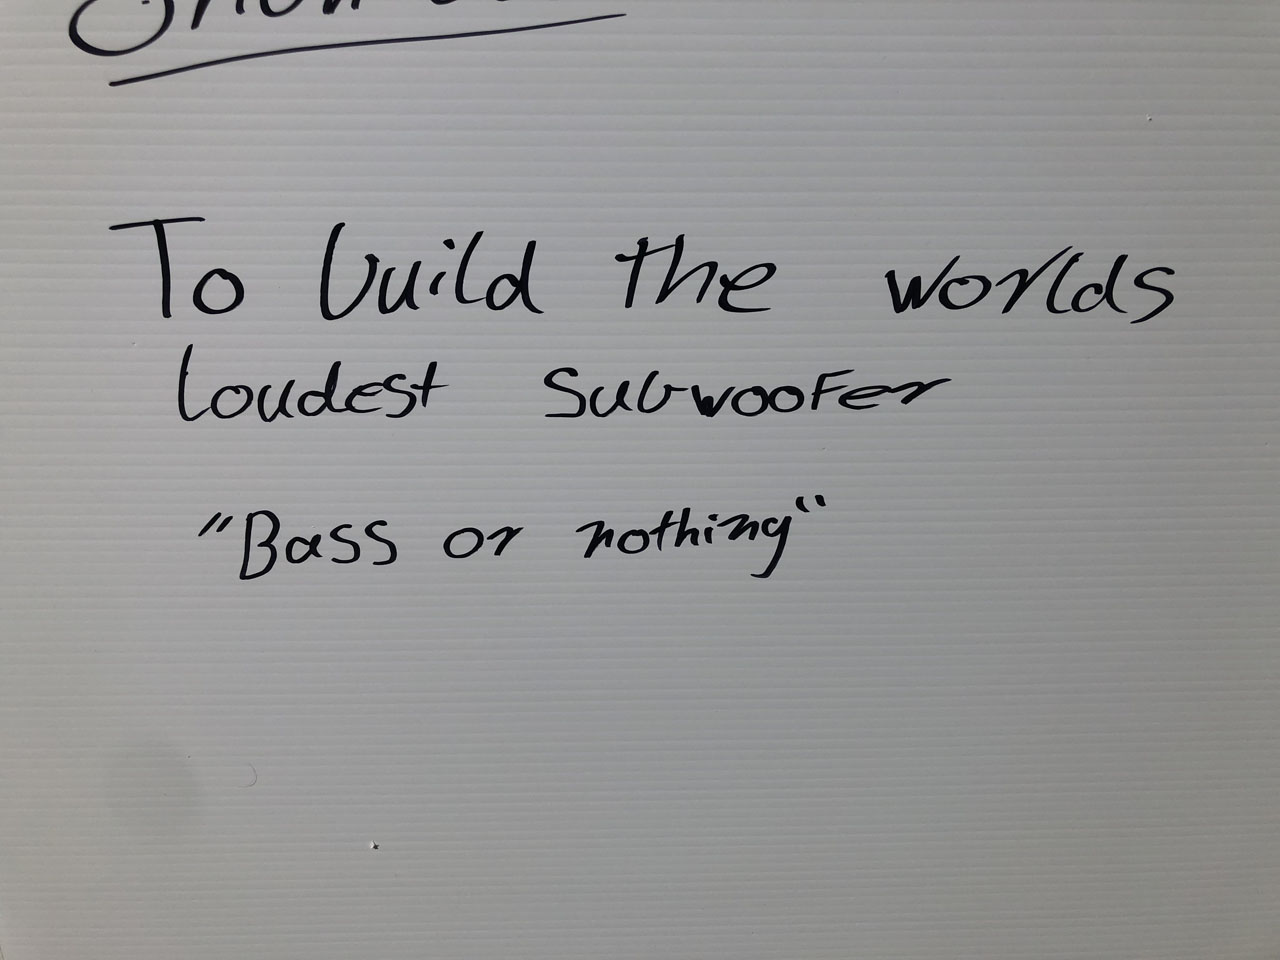 To build the worlds
loudest subwoofer
"Bass or nothing"